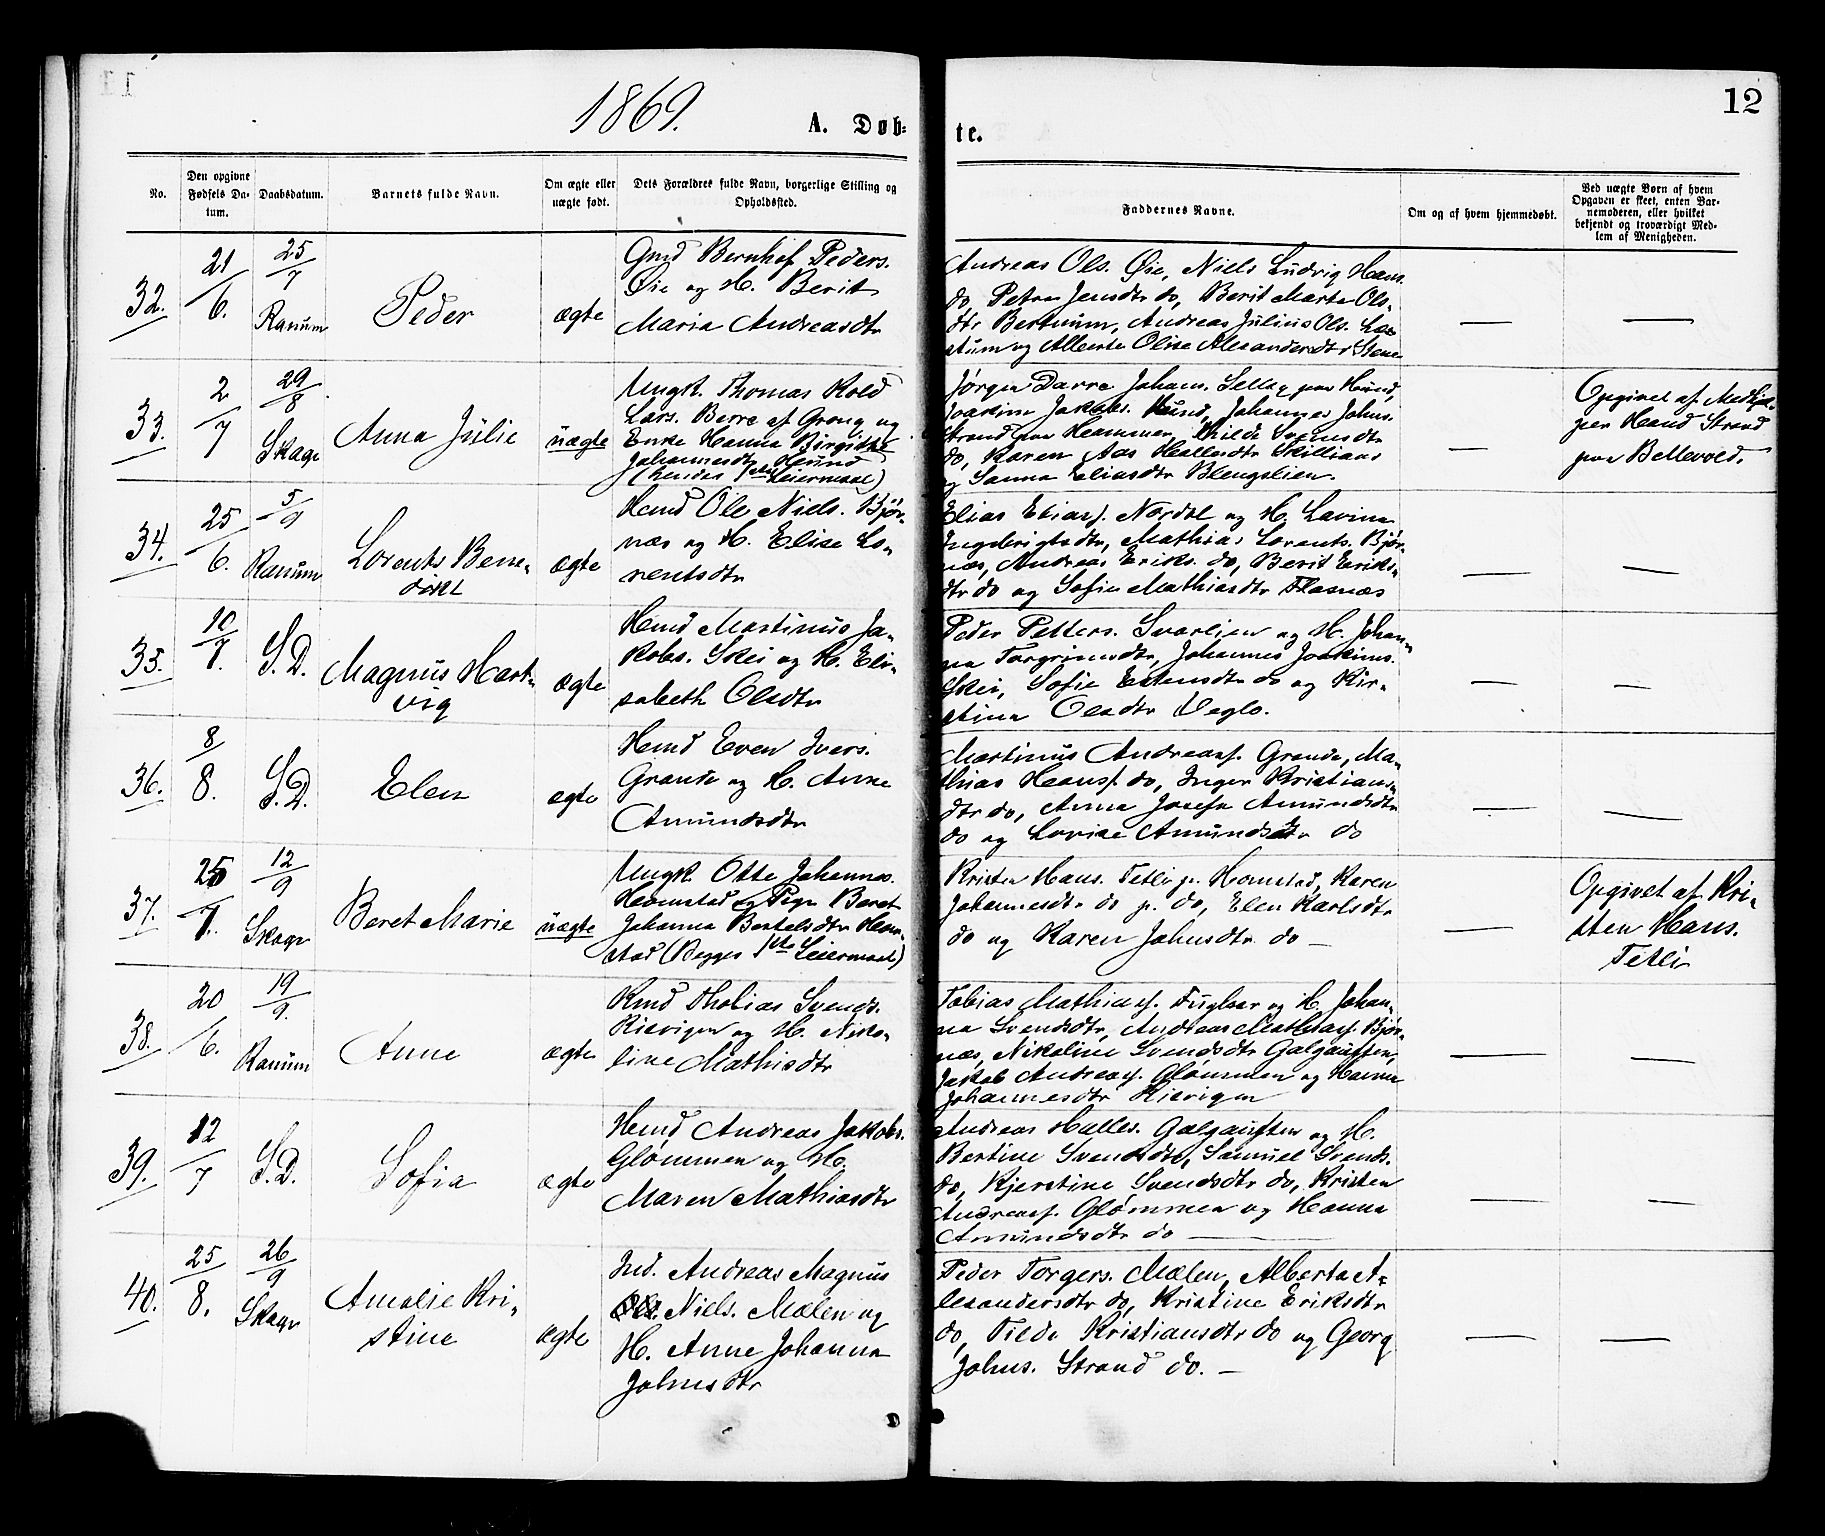 1869.
A. Døb-
te.
12
No.
Den opgivne Fødsels Da-tum.
Daabsdatum.
Barnets fulde Navn.
Om ægte eller uægte født.
Dets Forældres fulde Navn, borgerlige Stilling og Opholdssted.
Faddernes Navne.
Om og af hvem hjemmedøbt.
Ved uægte Børn af hvem Opgaven er skeet, enten Bar-nemoderen, eller hvilket bekjendt og troværdigt Med-lem af Menigheden.
32.
21/6.
25/7
Ranum
Peder
ægte
Gmd Bernhof Peders.
Øie og H. Berit
Maria Andreasdtr
Andreas Ols. Øie, Niels Ludvig Hans.
do, Petra Jensdtr do, Berit Marta Ols-
dtr Bertnum, Andreas Julius Ols.
og Alberte Olise Alexandersdtr
33.
2/7
29/8
Skage
Anna Julie
uægte
Ungk. Thomas Kold
Lars. Berre af Grong og
Enke Hanna Birgitte
Johannesdtr Hund
(hendes 1ste Leiermaal)
Jørgen Darre Johans. Selleg paa Hund,
Joakim Jakobs. Hund, Johannes Johns.
Strand paa Hammer, Hilda Svensdtr
do, Karen Aas Hallesdtr Skillians
og Sanna Eliasdtr Blengslien.
—
Opgivet af Medhjæl-
per Hand Strand
paa Bellevold.
34.
25/6.
5/9
Ranum
Lorents Bene-
dikt
ægte
Hmd Ole Niels. Bjør-
næs og H. Elise Lo-
rentsdtr
Elias Eliass. Nordbl og H. Lavina
Ingebrigtsdtr, Mathias Lorents. Bjør-
næs, Andreas Eriks. do, Berit Eriks-
dtr do og Sofie Mathiasdtr Flasnæs
35.
10/7.
S.D.
Magnus Hart-
vig
ægte
Hmd Martinus Ja-
kobs. Skei og H. Eli-
sabeth Olsdtr
Peder Petters. Svarlien og H. Johan-
na Torgrimsdtr, Johannes Joakims.
Skei, Sofie Estensdtr do og Kir-
stina Olsdtr Veglo.
36.
8/8.
S.D.
Elen
ægte
Hmd Even Ivers.
Grande og H. Anne
Amundsdtr
Martinus Andreass. Grande, Ma-
thias Hanss. do, Inger Kristians-
dtr do, Anna Josefa Amundsdtr
do og Lovise Amundsdtr do
37.
25/7.
12/9
Skage
Beret Marie
uægte
Ungk. Otte Johannes.
Homstad og Pige Beret
Johanna Bertelsdtr Hom-
stad (Begges 1ste Leiermaal)
Kristen Hans. Tetli p. Homstad, Karen
Johannesdtr do p. do, Elen Karlsdtr
do og Karen Johnsdtr do —
Opgivet af Kri-
sten Hans.
Tetli
38.
20/6.
19/9.
Ranum
Anne
ægte
Kmd Tholias Svends.
Risvigen og H. Niko-
line Mathisdtr
Tobias Mathiass. Fuglaar og H. Johan-
na Svendsdtr, Andreas Mathiass. Bjør-
næs, Nikoline Svendsdtr Galgauften,
Jakob Andreass. Glømmen og Hanna
Johannesdtr Risvigen
39.
12/7
S.D.
Sofia
ægte
Hmd Andreas Jakobs.
Glømmen og H.
Maren Mathiasdtr
Andreas Halles. Galgauften og H.
Bertine Svendsdtr, Samuel Svends.
do, Kjerstine Svendsdtr do, Kristen
Andreass. Glømmen og Hanna
Amundsdtr do
40.
25/8.
26/9
Skage
Amalie Kri-
stine
ægte
Ind. Andreas Magnus
Niels. Mælen og
H. Anne Johanna
Johnsdtr
Peder Torgers. Mælen, Alberta A-
lexandersdtr do, Kristine Eriksdtr
do, Tilda Kristiansdtr do og Georg
Johns. Strand do. —